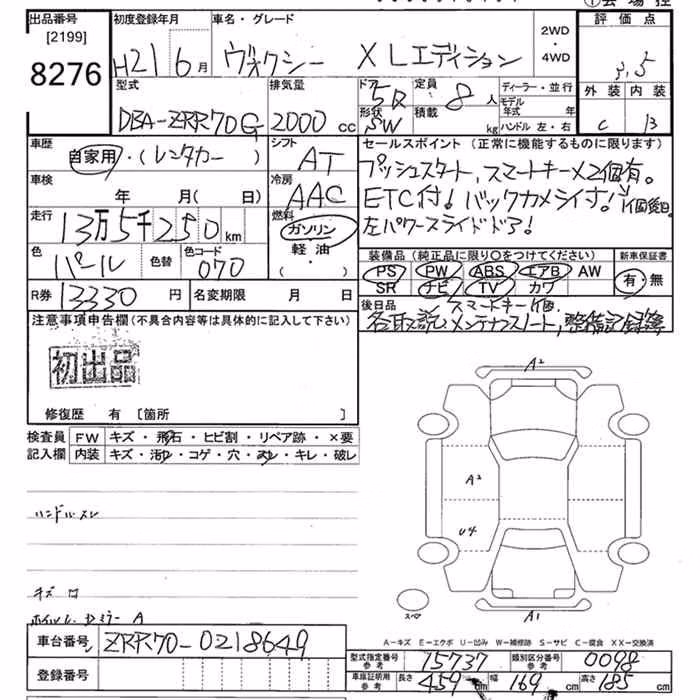 出品番号 [2199] 8276
初度登録年月 H21 6月
車名・グレード ヴォクシー XLエディション
2WD・4WD
評価点 3.5
外装 内装
C B
型式 DBA-ZRR70G
排気量 2000cc
ドア 5D
形状 SW
定員 8人
積載 kg
ディーラー・並行
モデル年式 年
ハンドル 左・右
車歴 自家用・(レンタカー)
シフト AT
車検 年 月(日)
冷房 AAC
走行 13万5千250km
燃料 ガソリン 軽油・( )
色 パール 色替
色コード 070
R券 13330円 名変期限 月 日
セールスポイント(正常に機能するものに限ります)
プッシュスタート,スマートキー×2個有。
ETC付!バックカメラ付!1個後日
左パワースライドドア!
装備品(純正品に限り○をつけてください)
PS PW ABS エアB AW
SR ナビ TV カワ
新車保証書
有・無
後日品 スマートキー1個
各取説,メンテナンスノート,整備記録簿
注意事項申告欄(不具合内容等は具体的に記入して下さい)
初出品
修復歴 有 [箇所 ]
検査員 FW キズ・飛石・ヒビ割・リペア跡・×要
記入欄 内装 キズ・汚レ・コゲ・穴・スレ・キレ・破レ
A2
A2
U4
A1
スペア
ハンドルスレ
キズ
A
A-キズ E-エクボ U-凹み W-補修跡 S-サビ C-腐食 XX-交換済
車台番号 ZRR70-0218649
登録番号
型式指定番号参考 15737
類別区分番号参考 0098
車庫証明用参考 長さ 459cm 幅 169cm 高さ 185cm